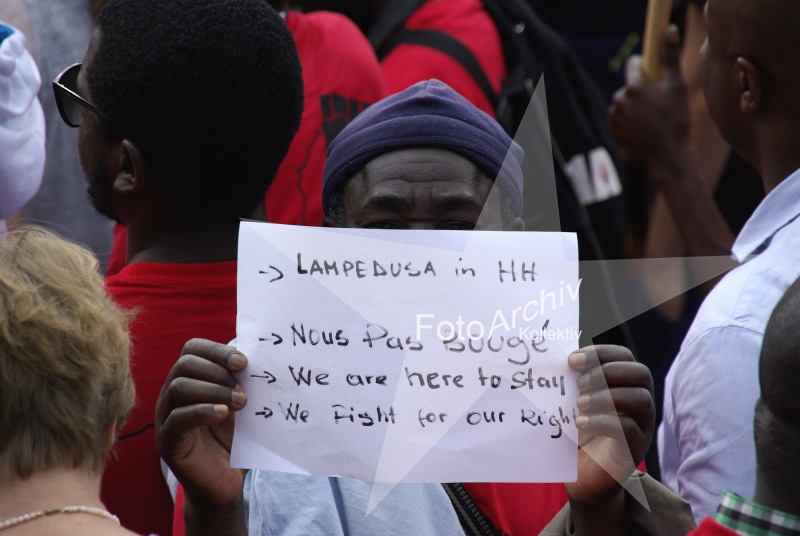 -> LAMPEDUSA in HH
-> Nous Pas Bougé
-> We are here to stay
-> We Fight for our Right
FotoArchiv
Kollektiv